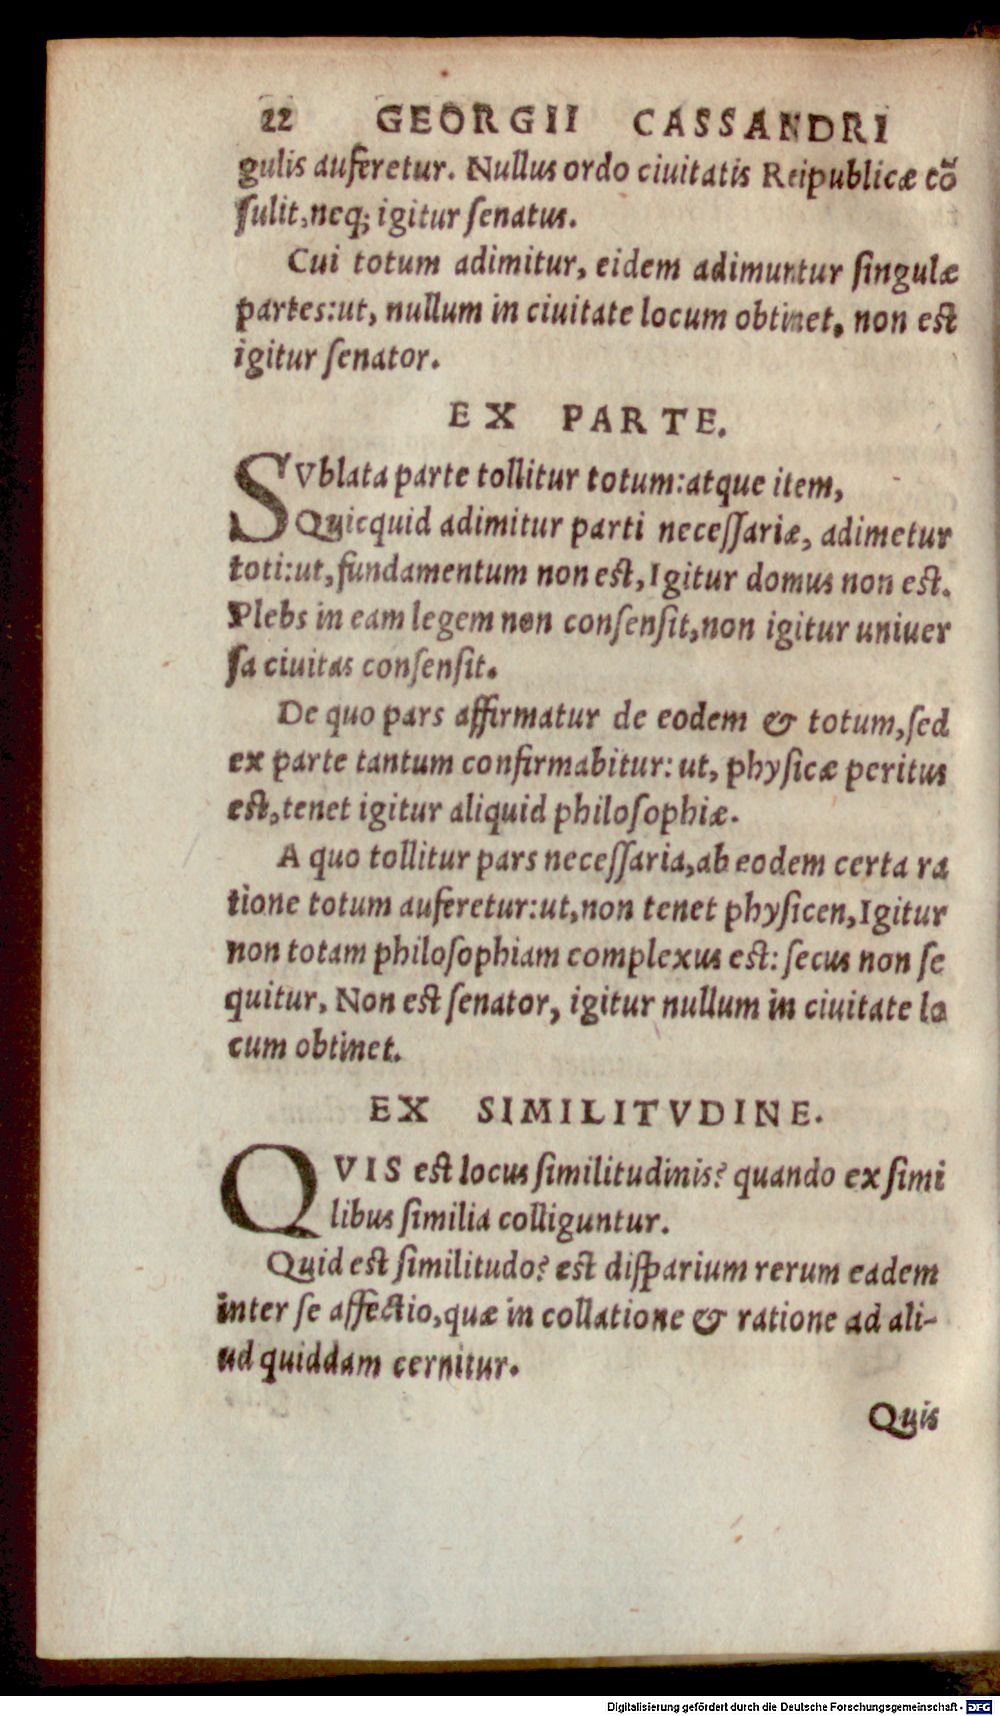 22 GEORGII CASSANDRI
gulis auferetur. Nullus ordo ciuitatis Reipublicæ cõ
ſulit, neq; igitur ſenatus.
Cui totum adimitur, eidem adimuntur ſingulæ
partes: ut, nullum in ciuitate locum obtinet, non eſt
igitur ſenator.
EX PARTE.
SVblata parte tollitur totum: atque item,
Quicquid adimitur parti neceſſariæ, adimetur
toti: ut, fundamentum non eſt, Igitur domus non eſt.
Plebs in eam legem non conſenſit, non igitur uniuer
ſa ciuitas conſenſit.
De quo pars affirmatur de eodem & totum, ſed
ex parte tantum confirmabitur: ut, phyſicæ peritus
eſt, tenet igitur aliquid philoſophiæ.
A quo tollitur pars neceſſaria, ab eodem certa ra
tione totum auferetur: ut, non tenet phyſicen, Igitur
non totam philoſophiam complexus eſt: ſecus non ſe
quitur. Non eſt ſenator, igitur nullum in ciuitate lo
cum obtinet.
EX SIMILITVDINE.
QVIS eſt locus ſimilitudinis? quando ex ſimi
libus ſimilia colliguntur.
Quid eſt ſimilitudo? eſt diſparium rerum eadem
inter ſe affectio, quæ in collatione & ratione ad ali-
ud quiddam cernitur.
Quis
Digitalisierung gefördert durch die Deutsche Forschungsgemeinschaft - DFG